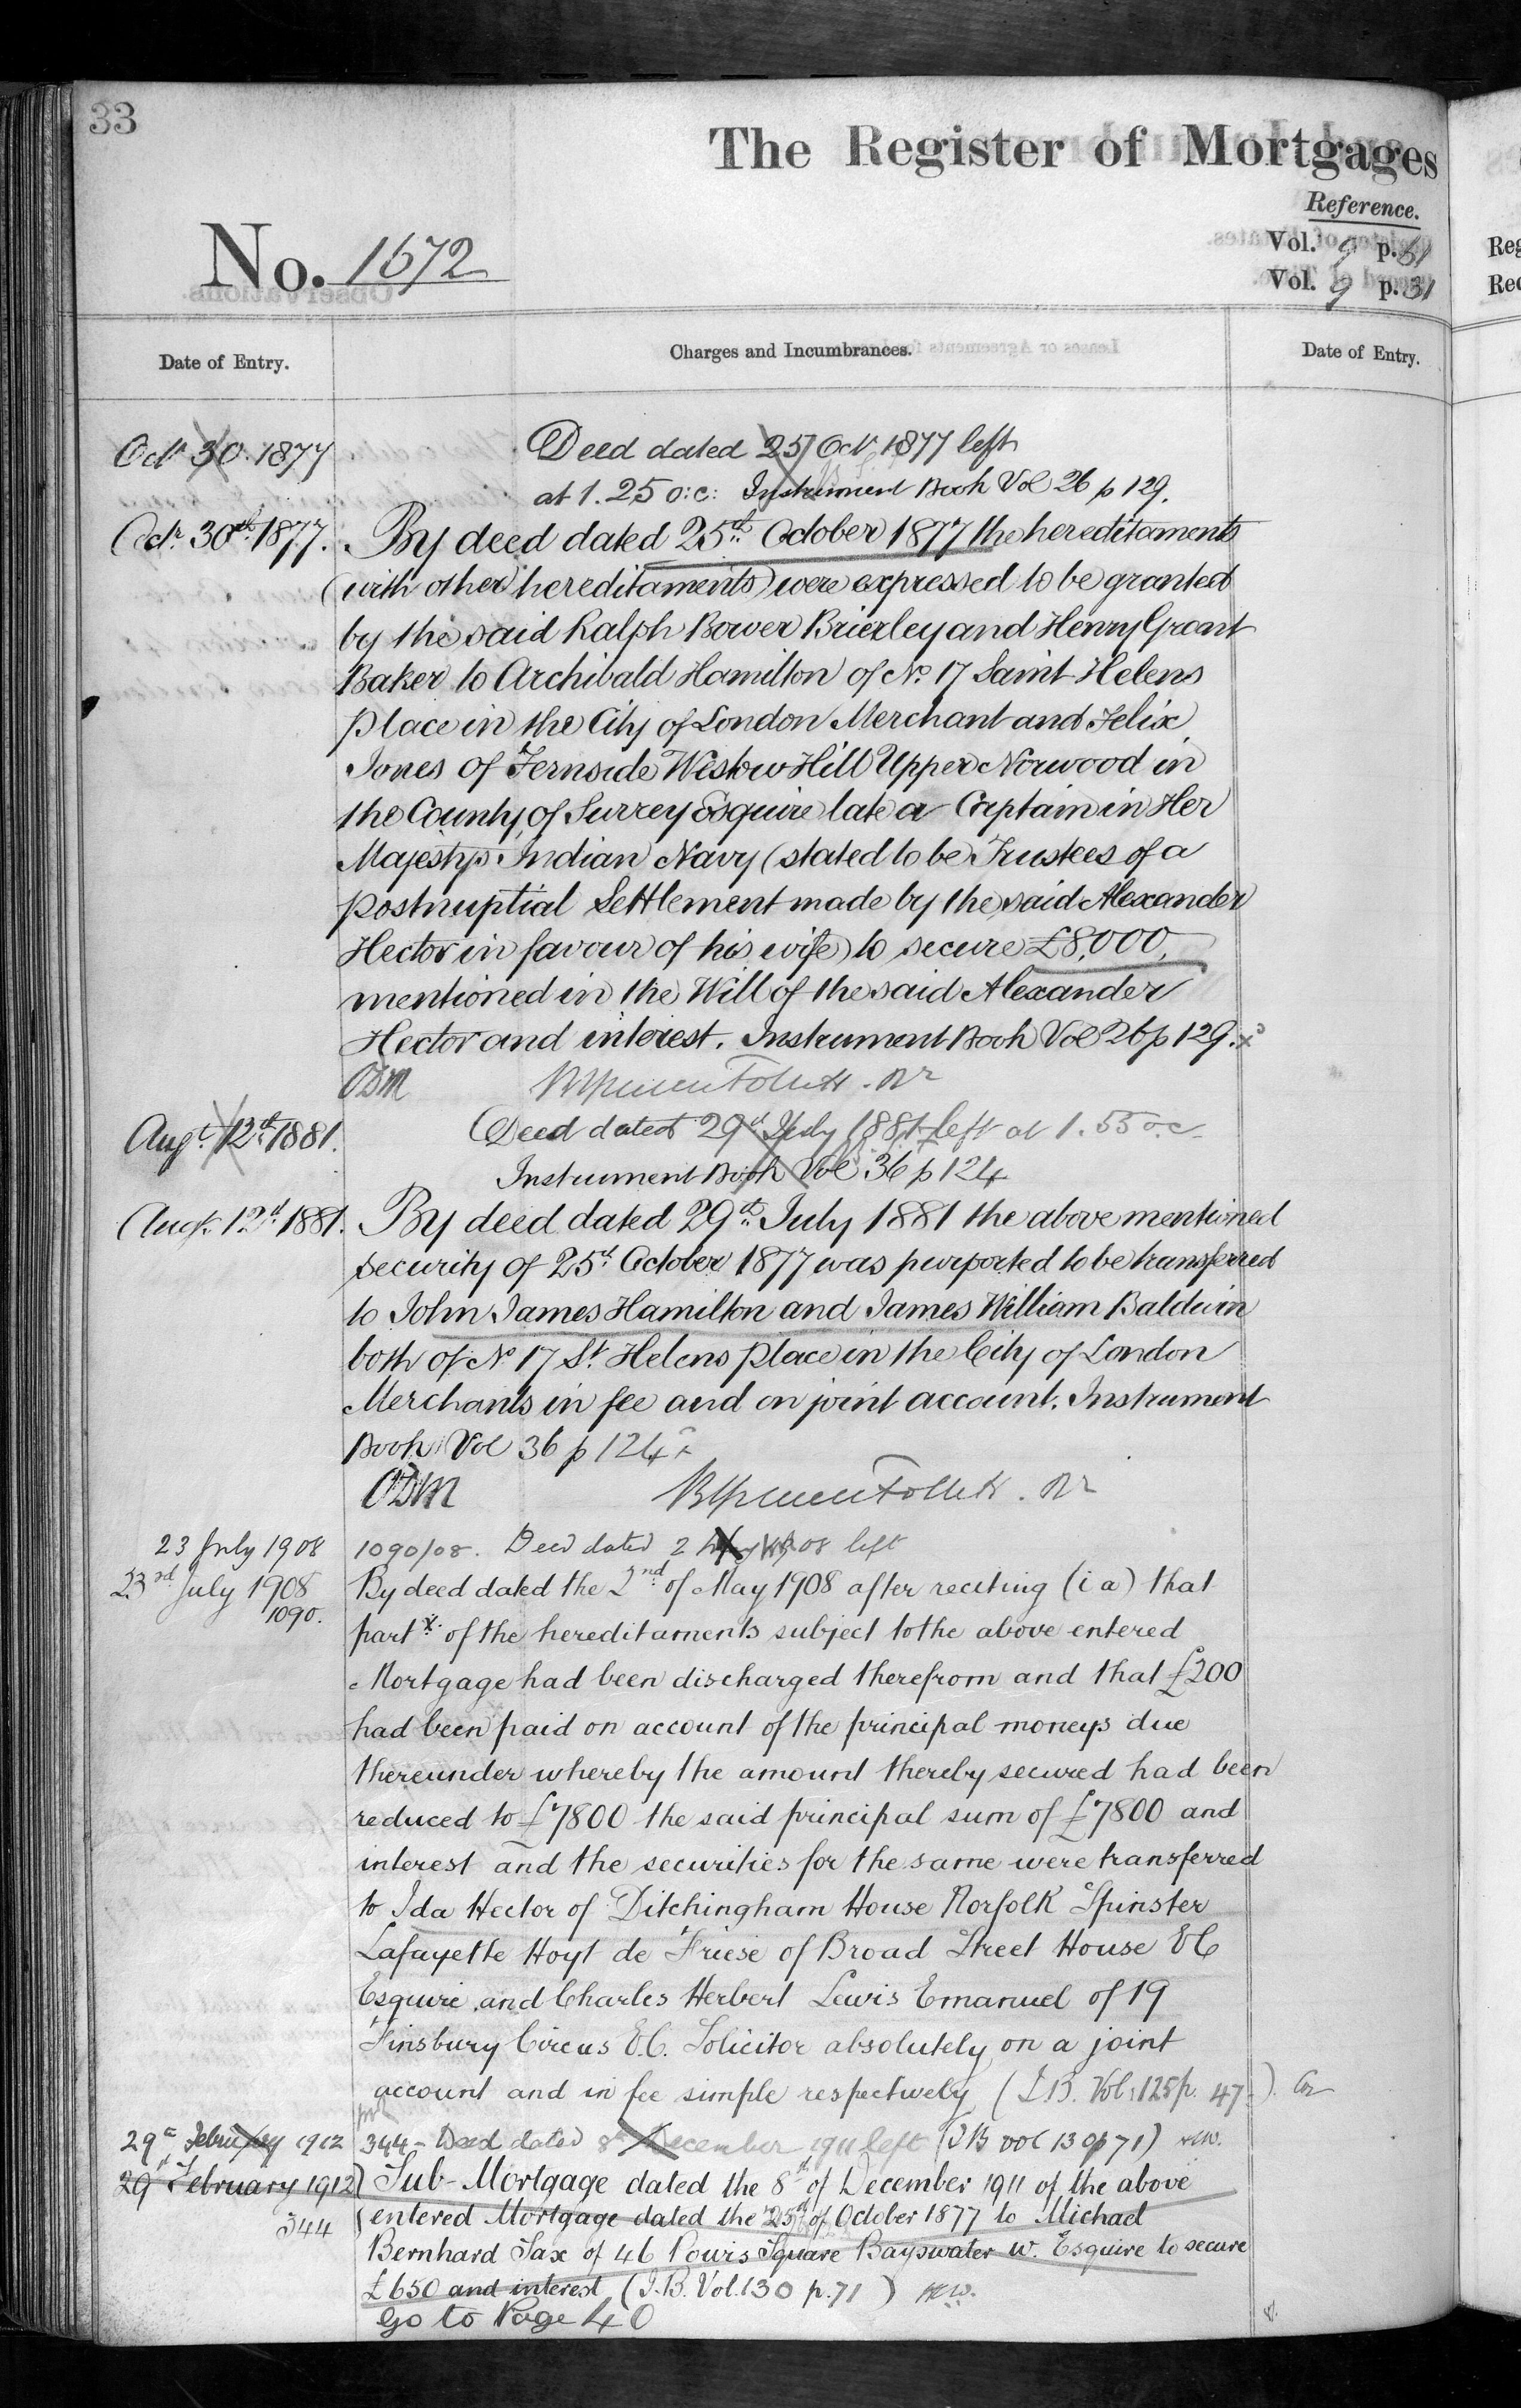 33
The Register of Mortgages
Reference.
No. 1672
Vol. 9 p. 61
Vol. 9 p. 31
Date of Entry.
Charges and Incumbrances.
Date of Entry.
Octr 30. 1877
Deed dated 25 Octr 1877 left
at 1.25 o:c: Instrument Book Vol 26 p 129.
Octr 30th 1877.
By deed dated 25th October 1877 the hereditaments
(with other hereditaments) were expressed to be granted
by the said Ralph Bower Brierley and Henry Grant
Baker to Archibald Hamilton of No 17 Saint Helens
place in the City of London Merchant and Felix
Jones of Fernside Westow Hill Upper Norwood in
the County of Surrey Esquire late a Captain in Her
Majestys Indian Navy (stated to be Trustees of a
postnuptial Settlement made by the said Alexander
Hector in favour of his wife) to secure £8,000,
mentioned in the Will of the said Alexander
Hector and interest. Instrument Book Vol 26 p 129. x
ODM
Augt 12th 1881.
Deed dated 29th July 1881 left at 1.55 o.c.
Instrument Book Vol 36 p 124
Augt 12th 1881.
By deed dated 29th July 1881 the above mentioned
security of 25th October 1877 was purported to be transferred
to John James Hamilton and James William Baldwin
both of No 17 St Helens place in the City of London
Merchants in fee and on joint account. Instrument
Book Vol 36 p 124 x
ODM
23 July 1908
1090/08. Deed dated 2 May 08 left
23rd July 1908
1090.
By deed dated the 2nd of May 1908 after reciting (i a) that
part x of the hereditaments subject to the above entered
Mortgage had been discharged therefrom and that £200
had been paid on account of the principal moneys due
thereunder whereby the amount thereby secured had been
reduced to £7800 the said principal sum of £7800 and
interest and the securities for the same were transferred
to Ida Hector of Ditchingham House Norfolk Spinster
Lafayette Hoyt de Friese of Broad Street House EC
Esquire and Charles Herbert Lewis Emanuel of 19
Finsbury Circus E.C. Solicitor absolutely on a joint
account and in fee simple respectively (I.B. Vol. 125 p. 47.)
29th February 1912
344 - Deed dated 8th December 1911 left (IB vol 130 p 71)
29th February 1912
344
Sub-Mortgage dated the 8th of December 1911 of the above
entered Mortgage dated the 25th of October 1877 to Michael
Bernhard Sax of 46 Powis Square Bayswater W. Esquire to secure
£650 and interest (I.B. Vol. 130 p. 71)
Go to Page 40